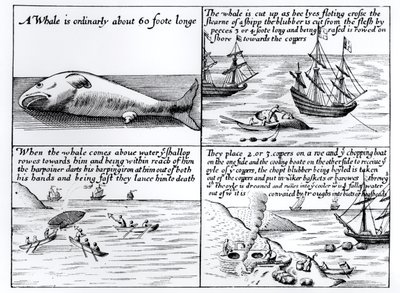 A Whale is ordinarly about 60 foote longe
The whale is cut up as hee lyes floting crosse the
stearne of a shipp the blubber is cut from the flesh by
peeces 3 or 4 foote long and being rased is rowed on
shore towards the coppers
When the whale comes aboue water ye shallop
rowes towards him and being within reach of him
the harpoiner darts his harping iron at him out of both
his hands and being fast they lance him to death
They place 2 or 3 coppers on a row and ye chopping boat
on the one side and the cooling boate on the other side to receiue ye
oyle of ye coppers, the chopt blubber being boyled is taken
out of the coppers and put in wiker baskets or barowes throwgh
wch The oyle is dreaned and runes into ye cooler wch is full of water
out of wch it is conuaied by troughs into butts or hogsheads